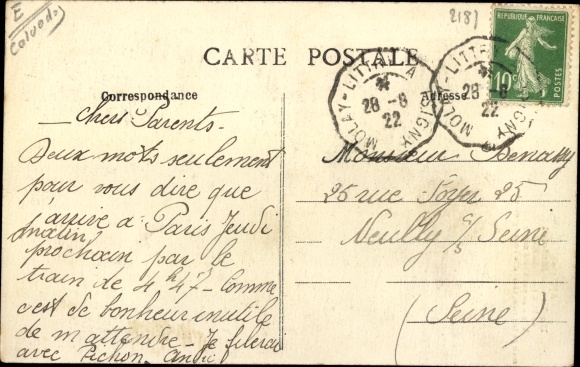 E
Calvados
2181
RÉPUBLIQUE FRANÇAISE
10c
POSTES
CARTE POSTALE
MOLAY-LITTRY A ISIGNY
28-8
22
MOLAY-LITTRY A ISIGNY
28-8
22
Correspondance
Adresse
Chers Parents.
Deux mots seulement
pour vous dire que
j'arrive à Paris Jeudi
matin
prochain par le
train de 4h47 - Comme
c'est de bonheur inutile
de m'attendre - Je filerai
avec Pichon. André
Monsieur
25 rue Soyer 25
Neuilly s/ Seine
(Seine)